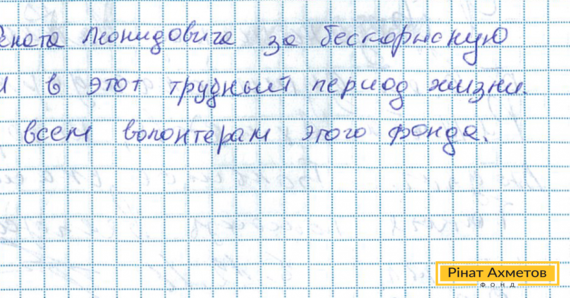 Рената Леонидовича за бескорысную
в этот трудный период жизни.
всем волонтерам этого фонда.
Рінат Ахметов
ФОНД